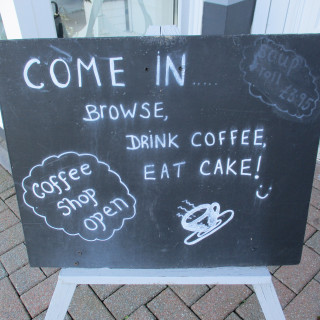 COME IN.....
BROWSE,
DRINK COFFEE,
EAT CAKE!
Coffee
Shop
Open
Soup
Roll
£3.95